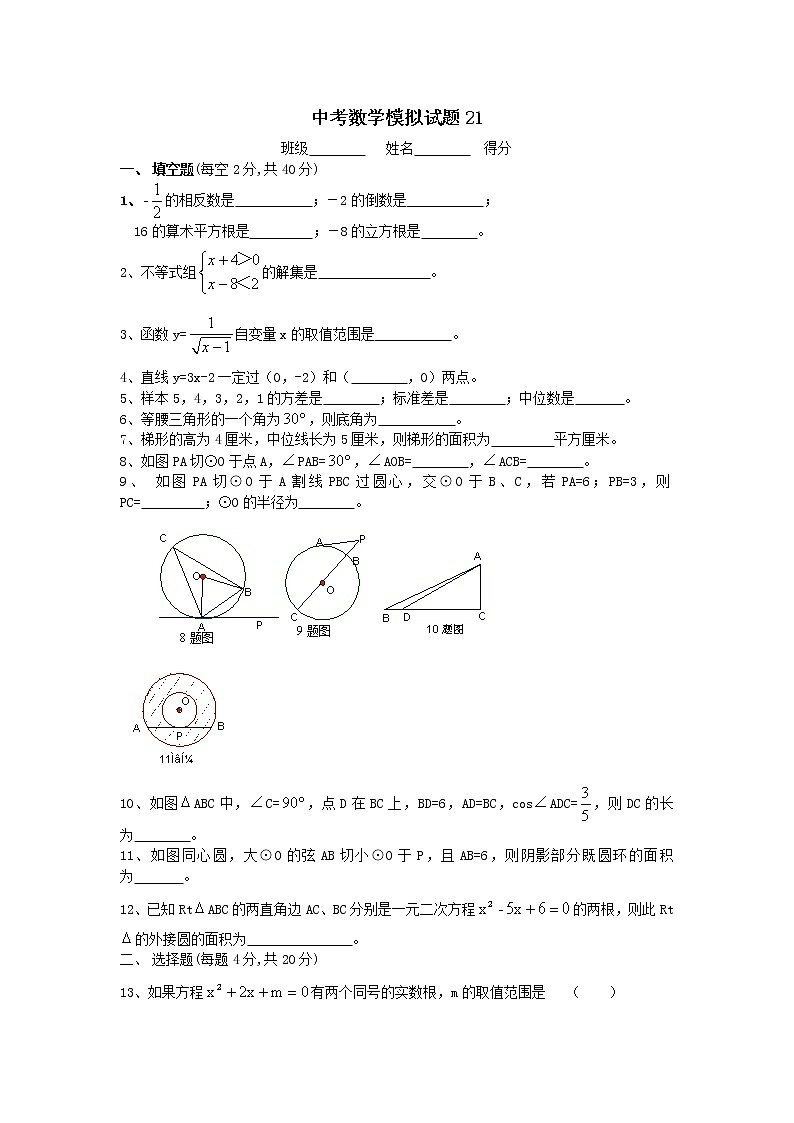 中考数学模拟试题21
班级________ 姓名________ 得分
一、 填空题(每空2分,共40分)
1、-1/2的相反数是___________;-2的倒数是___________;
16的算术平方根是_________;-8的立方根是________。
2、不等式组{x+4>0 x-8<2的解集是________________。
3、函数y=1/√(x-1)自变量x的取值范围是___________。
4、直线y=3x-2一定过(0,-2)和(________,0)两点。
5、样本5,4,3,2,1的方差是________;标准差是________;中位数是_______。
6、等腰三角形的一个角为30°,则底角为___________。
7、梯形的高为4厘米,中位线长为5厘米,则梯形的面积为_________平方厘米。
8、如图PA切⊙O于点A,∠PAB=30°,∠AOB=________,∠ACB=________。
9、 如图PA切⊙O于A割线PBC过圆心,交⊙O于B、C,若PA=6;PB=3,则
PC=_________;⊙O的半径为________。
C O B A P
8题图
A P B O C
9题图
A B D C
10题图
O A P B
11ÌâÍ¼
10、如图ΔABC中,∠C=90°,点D在BC上,BD=6,AD=BC,cos∠ADC=3/5,则DC的长
为________。
11、如图同心圆,大⊙O的弦AB切小⊙O于P,且AB=6,则阴影部分既圆环的面积
为_______。
12、已知RtΔABC的两直角边AC、BC分别是一元二次方程x²-5x+6=0的两根,则此Rt
Δ的外接圆的面积为_______________。
二、 选择题(每题4分,共20分)
13、如果方程x²+2x+m=0有两个同号的实数根,m的取值范围是 ( )